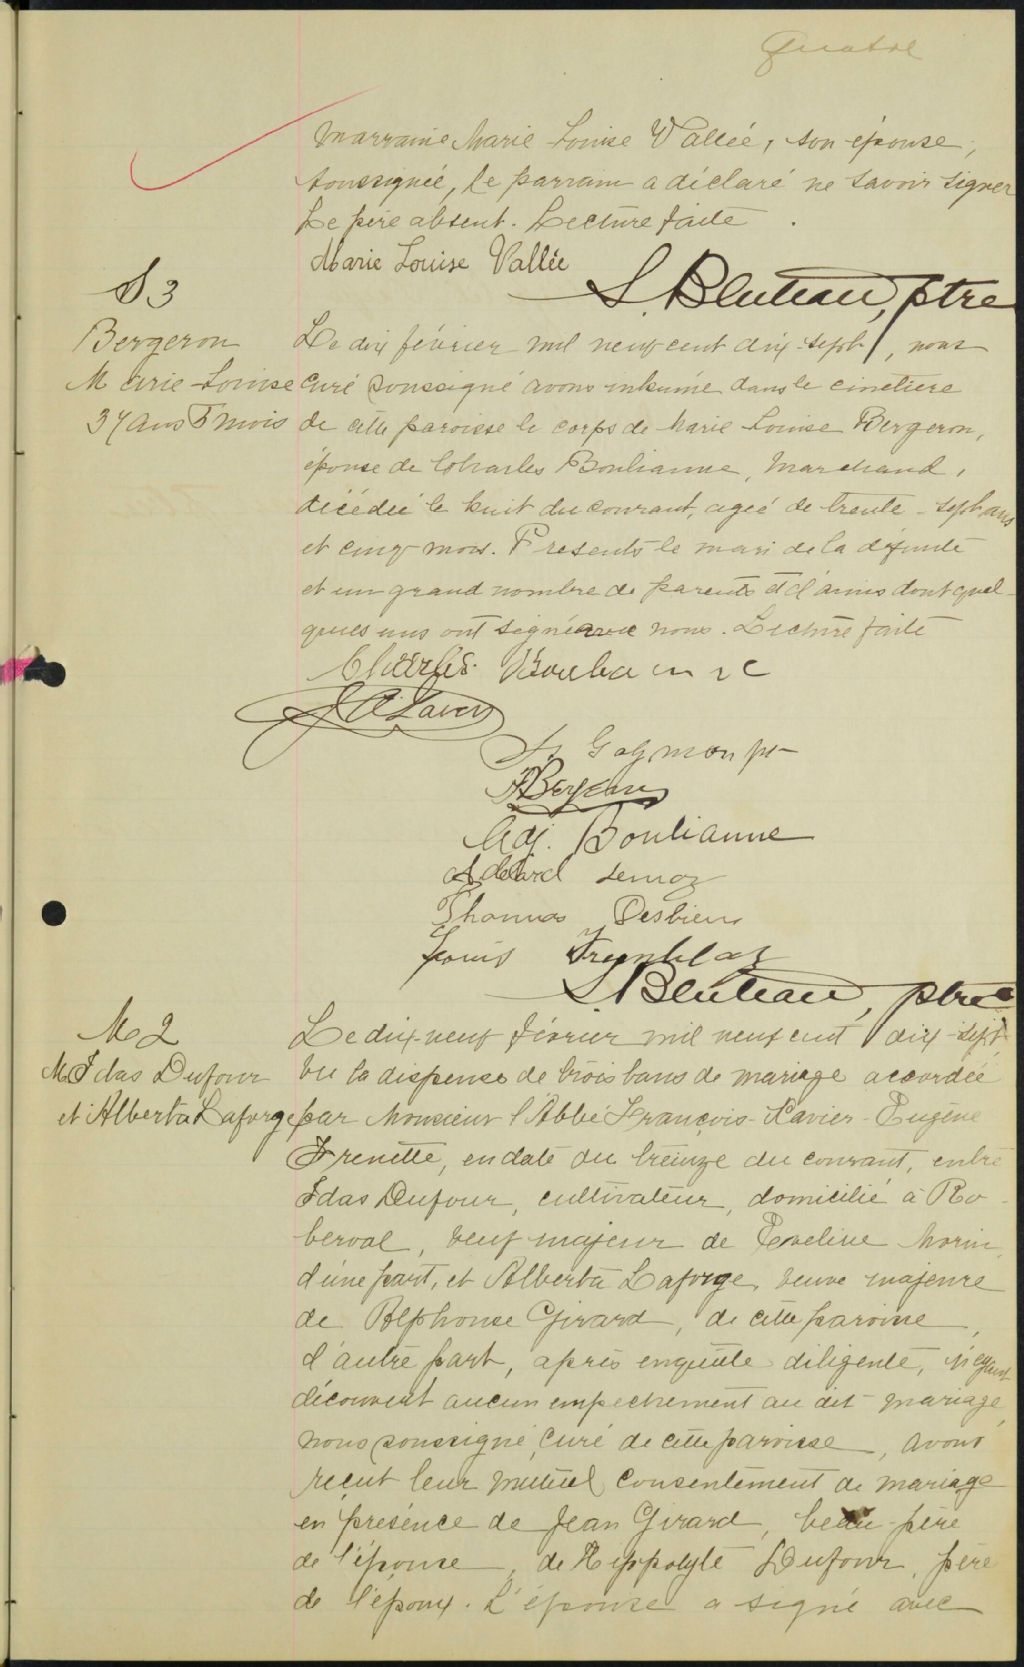 Quatre
marraine Marie Louise Vallée, son épouse,
soussignée, le parrain a déclaré ne savoir signer
Le père absent. Lecture faite.
Marie Louise Vallée
S. Bluteau, ptre
S 3
Bergeron
Marie-Louise
37 ans 5 mois
Le dix février mil neuf cent dix-sept, nous
curé soussigné avons inhumé dans le cimetière
de cette paroisse le corps de Marie Louise Bergeron,
épouse de Charles Boulianne, marchand,
décédée le huit du courant, agée de trente-sept ans
et cinq mois. Présents le mari de la défunte
et un grand nombre de parents et d'amis dont quel-
ques uns ont signé avec nous. Lecture faite
Charles Boulianne
Gagnon
Adj. Boulianne
Thomas Desbiens
Louis Tremblay
S. Bluteau, ptre
M 2
M. Idas Dufour
et Alberta Laforge
Le dix-neuf février mil neuf cent dix-sept,
vu la dispense de trois bans de mariage accordée
par Monsieur l'Abbé François-Xavier-Eugène
Frenette, en date du treize du courant, entre
Idas Dufour, cultivateur, domicilié à Ro-
berval, veuf majeur de Eveline Morin,
d'une part, et Alberta Laforge, veuve majeure
de Alphonse Girard, de cette paroisse,
d'autre part, après enquête diligente, n'ayant
découvert aucun empechement au dit mariage,
nous soussigné, curé de cette paroisse, avons
reçut leur mutuel consentement de mariage
en présence de Jean Girard, beau-père
de l'épouse, de Hippolyte Dufour, père
de l'époux. L'épouse a signé avec